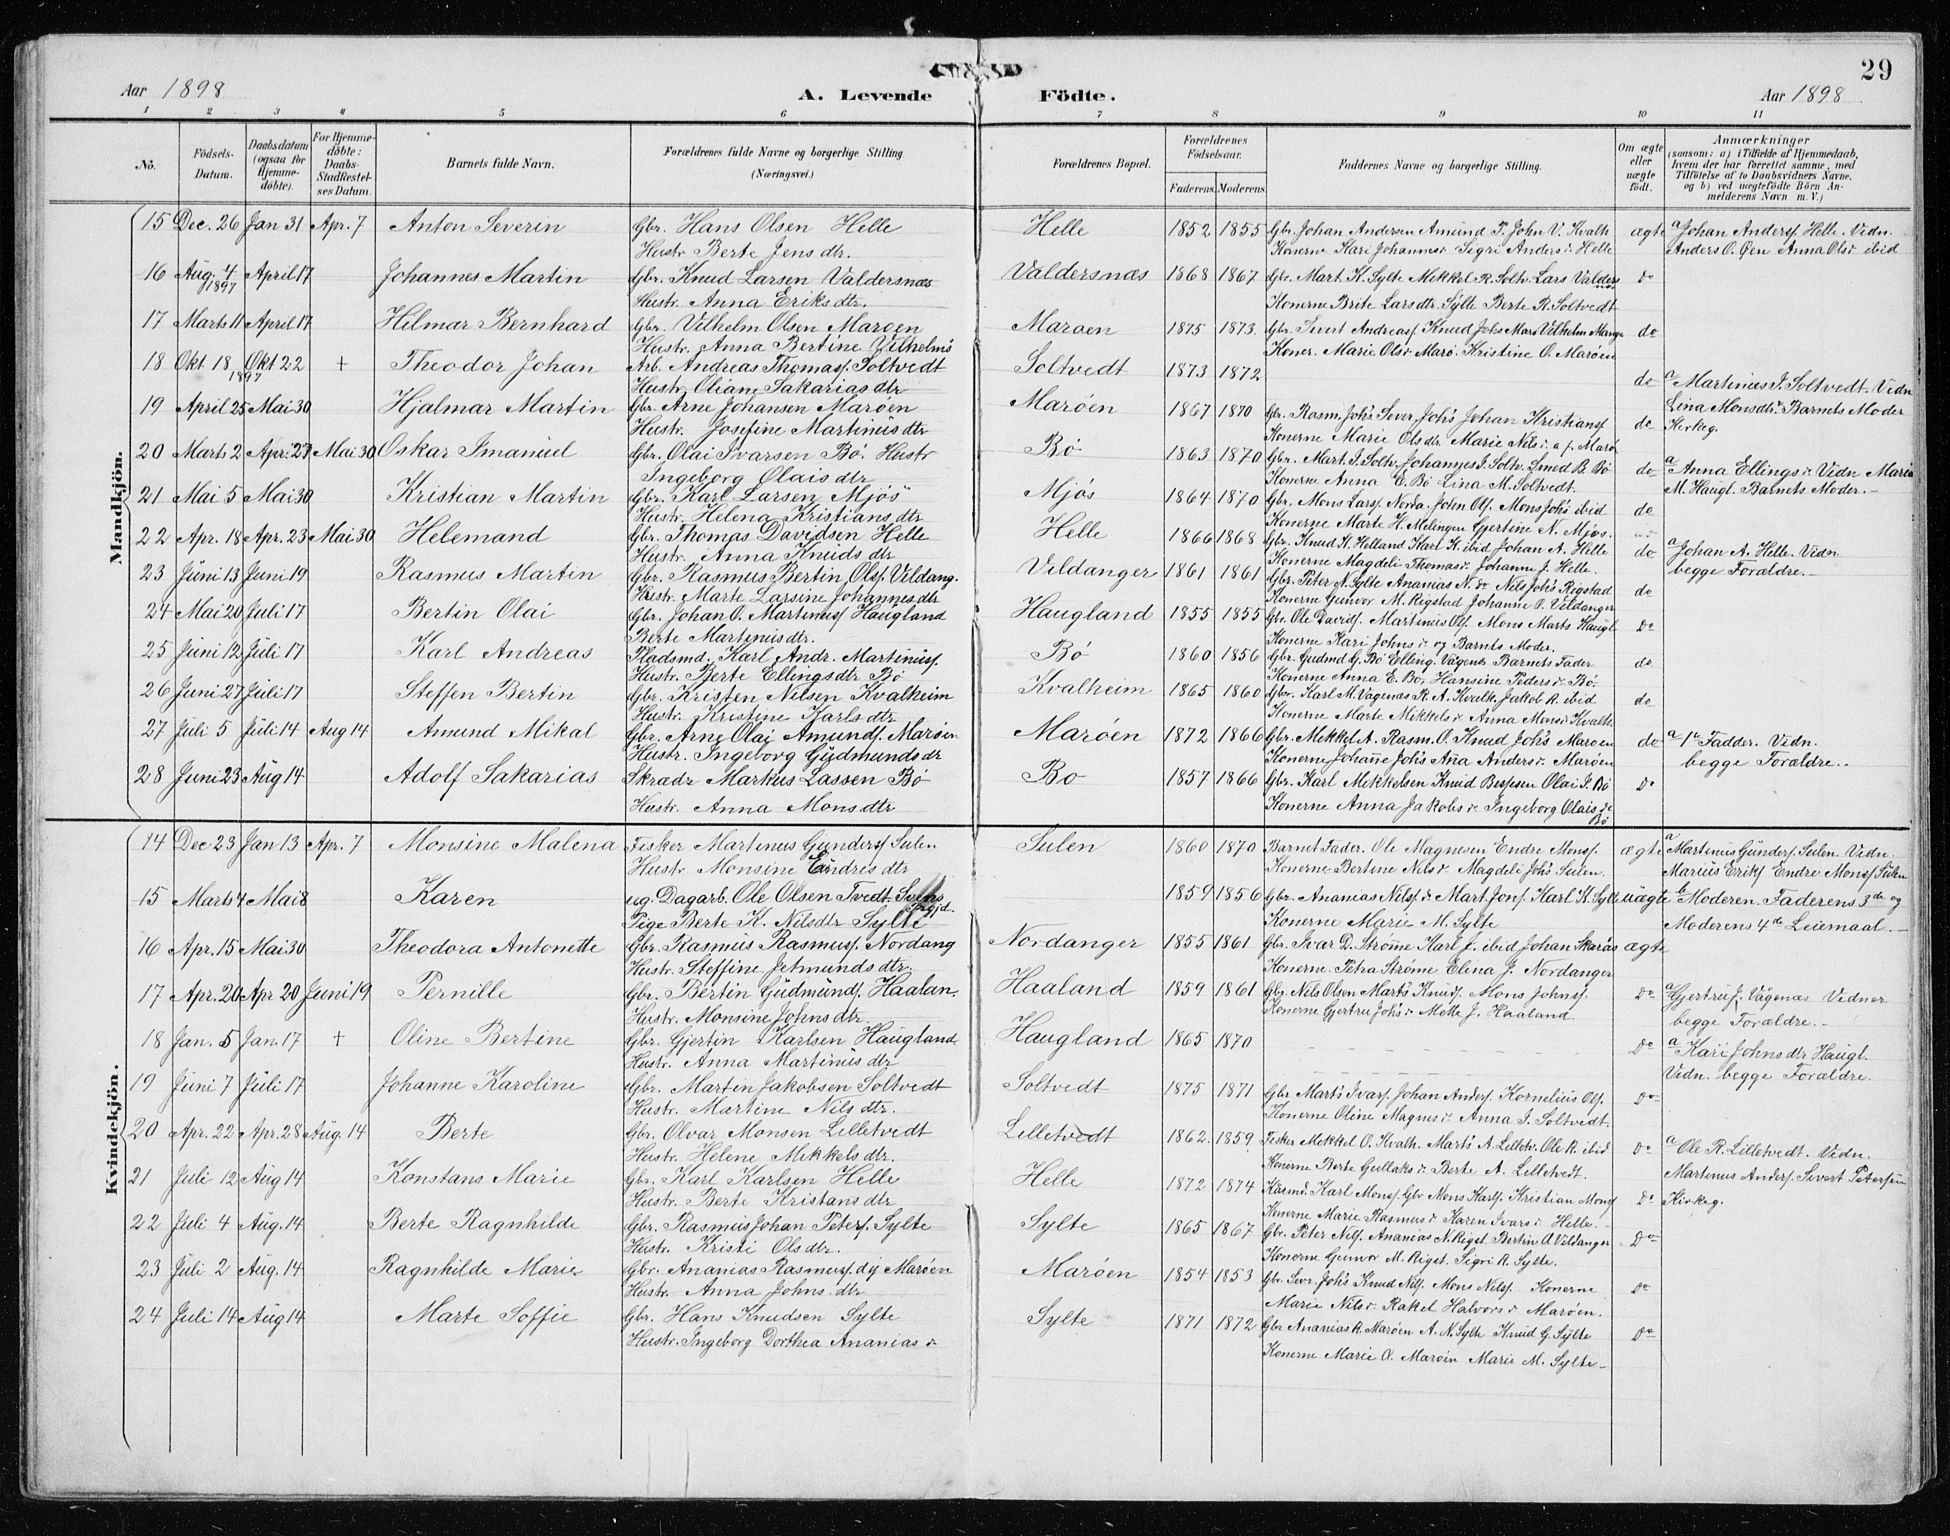 29
Aar 1898 A. Levende Födte. Aar 1898
1 2 3 4 5 6 7 8 9 10 11
No. Födsels-Datum. Daabsdatum (ogsaa for Hjemme-döbte). For Hjemme-döbte: Daabs-Stadfæstel-ses Datum. Barnets fulde Navn. Forældrenes fulde Navne og borgerlige Stilling (Næringsvei.) Forældrenes Bopæl. Forældrenes Födselsaar. Faderens. Moderens. Faddernes Navne og borgerlige Stilling. Om ægte eller uægte födt. Anmærkninger (saasom: a) i Tilfælde af Hjemmedaab, hvem der har forrettet samme, med Tilföielse af to Daabsvidners Navne, og b) ved uægtefödte Börn An-melderens Navn m. V.)
Mandkjön.
15 Dec. 26 Jan 31 Apr. 7 Anton Severin Gbr. Hans Olsen Helle Helle 1852 1855 Gbr. Johan Andersen Amund P. John V. Kvalh ægte a Johan Anders. Helle. Vidn.
Hustr Berte Jens dtr. Konerne Kari Johannesdr Sigri Andersdr Helle Anders O. Øen Anna Olsdr ibid
16 Aug. 4 1897 April 17 Johannes Martin Gbr. Knud Larsen Valdersnæs Valdersnæs 1868 1867 Gbr. Mart. K. Sylte Mekkel R. Soltv. Lars Valders do
Hustr. Anna Eriks dtr. Konerne Brite Larsdtr. Sylte Berte R. Soltvedt
17 Marts 11 April 17 Hilmar Bernhard Gbr. Vilhelm Olsen Maroen Maroen 1875 1873. Gbr. Sivert Andreas. Knud Johs Marø Vilhelm do
Hustr. Anna Bertine Vilhelms Koner. Marie Olsdr Marø. Kristine O. Marøen
18 Okt 18 1897 Okt 22 + Theodor Johan Arb. Andreas Thomass. Soltvedt Soltvedt 1873 1872 do a Martinus J. Soltvedt. Vidn
Hustr. Oliane Sakarias dtr Lina Monsdtr Barnets Moder
19 April 25 Mai 30 Hjalmar Martin Gbr. Arne Johansen Marøen Marøen 1867 1870 Gbr. Rasm. Johs Sever Johs Johan Kristians. do Kirkeg.
Hustr. Josefine Martinus dtr Konerne Marie Ols dr. Marie Nilsdr a f. Marø
20 Marts 2 Apr. 27 Mai 30 Oskar Imanuel Gbr. Olai Ivarsen Bø. Hustr Bø 1863 1870 Gbr. Mart. J. Soltv. Johannes J. Soltv. Smed B. Bø do a Anna Ellingsdr Vidn Maria
Ingeborg Olais dtr Konerne Anna E. Bø Lina M. Soltvedt. M. Haugl. Barnets Moder.-
21 Mai 5 Mai 30 Kristian Martin Gbr. Karl Larsen Mjøs Mjøs 1864 1870 Gbr. Mons Lars. Norda. John Ols. Mons Johs ibid do
Hustr. Helena Kristians dtr Konerne Marte H. Melingen Gjertine N. Mjøs.
22 Apr. 18 Apr. 23 Mai 30 Helemand Gbr. Thomas Davidsen Helle Helle 1866 1868 Gbr. Knud K. Helland Karl K. ibid Johan A. Helle do a Johan A. Helle. Vidn.
Hustr. Anna Knuds dtr Konerne Magdeli Thomasdr Johanne J. Helle. begge Foraldre.-
23 Juni 13 Juni 19 Rasmus Martin Gbr. Rasmus Bertin Ols. Vildang. Vildanger 1861 1861 Gbr. Peter N. Sylte Ananias N. do Nils Johs Rigstad do
Hustr. Marte Larsine Johannes dtr Konerne Gunvor M. Rigstad Johanne P. Vildanger
24 Mai 20 Juli 17 Bertin Olai Gbr. Johan O. Martinus. Haugland Haugland 1855 1855 Gbr. Ole Davids. Martinus Ols. Mons Marts Haugl do
Berte Martinus dtr. Konerne Kari Johnsdr og Barnts Moder.
25 Juni 12 Juli 17 Karl Andreas Pladsmd. Karl Andr. Martinus. Bø 1860 1856 Gbr. Gudmd G. Bø Elling. Vågenes Barnets Fader do
Hustr. Berte Ellingsdtr Bø Konerne Anna E. Bø, Hansine Pedersdr Bø
26 Juni 27 Juli 17 Steffen Bertin Gbr. Kristen Nilsen Kvalheim Kvalheim 1865 1860 Gbr. Karl M. Vågenæs R. A. Kvalh. Jakob R. ibid do
Hustr. Kristine Karls dtr Konerne Marte Mikkelsdr Anna Monsdr Kvalh.
27 Juli 5 Juli 14 Aug 14 Amund Mikal Gbr. Arne Olai Amunds. Marøen Marøen 1872 1866 Gbr. Mekkel A. Rasm. O. Knud Johs Marøen do a 1e Fadder. Vidn.
Hustr. Ingeborg Gudmunds dr Konerne Johanne Johs Ana Andersdr Marøen begge Foraldre..
28 Juni 23 Aug 14 Adolf Sakarias Skradr Markus Lassen Bø Bo 1857 1866 Gbr. Karl Mikkelsen Knud Bersen Olai I. Bø do
Hustr. Anna Mons dtr Konerne Anna Jakobsdr Ingeborg Olais dr Bø
Kvindekjön.
14 Dec 23 Jan 13 Apr. 7 Monsine Malena Fisker Martinus Gunders. Sulen Sulen 1860 1870 Barnet Fader. Ole Magnesen Endre Mons. ægte a Martinus Gunders. Sulen. Vidn.
Hustr. Monsine Endres dtr Konerne Bertine Nilsdr Magdeli Johs Sulen. Marius Eriks. Endre Mons. Sulen
15 Marts 4 Mai 8 Karen ug. Dagarb. Ole Olsen Tvedt. Svens 1859 1856 Gbr. Ananias Nils. Mart Jons. Karl K. Sylte uægte b Moderen. Faderens 3de og
Pige Berte K. Nilsdtr Sylte Konerne Marie M. Sylte Moderens 4de Leiemaal.-
16 Apr. 15 Mai 30 Theodora Antonette Gbr. Rasmus Rasmus. Nordang Nordanger 1855 1861 Gbr. Ivar D. Strømme Karl J. ibid Johan Skarås ægte
Hustr. Steffine Jetmunds dtr. Konerne. Petra Strøme Elina J. Nordanger
17 Apr. 20 Apr 20 Juni 19 Pernille Gbr. Bertin Gudmunds. Haalan. Haaland 1859 1861 Gbr. Nils Olsen Marts Knuds. Mons Johns. do a Gjertru J. Vågenæs Vidner
Hustr. Monsine Johns dtr. Konerne Gjertru Johsdr Mette J. Haaland. begge Foraldre.-
18 Jan. 5 Jan. 17 + Oline Bertine Gbr. Gjertin Karlsen Haugland Haugland 1865 1870 do a Kari Johns dtr Haugl.
Hustr. Anna Martinus dtr Vidn. begge Foraldre.
19 Juni 7 Juli 17 Johanne Karoline Gbr. Martin Jakobsen Soltvedt Soltvedt 1875 1871 Gbr Marts Ivars. Johan Anders. Kornelius Ols. do
Hustr. Martine Nils dtr. Konerne Oline Magnesdr Anna I. Soltvedt.
20 Apr. 22 Apr. 28 Aug. 14 Berte Gbr. Olvar Monsen Lilletvedt Lilletvedt 1862 1859 Fisker Mekkel O. Kvalh. Marts A. Lilletv. Ole R. ibid do a Ole R. Lilletvedt. Vidn.
Hustr. Helene Mikkels dtr. Konerne Berte Gullaksdr Berte A. Lilletvedt. Martinus Anders. Sivert
21 Juli 12 Aug 14 Konstans Marie Gbr. Karl Karlsen Helle Helle 1872 1874 Karl Mons. Gbr Mons Karls. Kristian Mons. do Kirkeg.
Hustr. Berte Kristans dtr Konerne Marie Rasmusdr Karen Ivarsdr Helle.-
22 Juli 4 Aug. 14 Berte Ragnhilde Gbr. Rasmus Johan Peters. Sylte Sylte 1865 1867 Gbr. Peter Nils. Ananias N. Rigst. Bertin O. Vildanger do
Hustr. Kristi Ols dtr. Konerne Gunvor M. Rigst. Sigri R. Sylte.
23 Juli 2 Aug. 14 Ragnhilde Marie Gbr. Ananias Rasmus. dy Marøen Marøen 1854 1853 Gbr. Sevr. Johs Knud Nils. Mons Nils. Konerne do
Hustr. Anna Johns dtr Marie Nilsdr Rakel Halvorsdr Marøen.
24 Juli 14 Aug 14 Marte Soffie Gbr. Hans Knudsen Sylte Sylte 1871 1872 Gbr Ananias R. Marøen A. N. Sylte Knud G. Sylte do
Hustr. Ingeborg Dorthea Ananias dr Konerne Marie O. Marøin Marie M. Sylte-